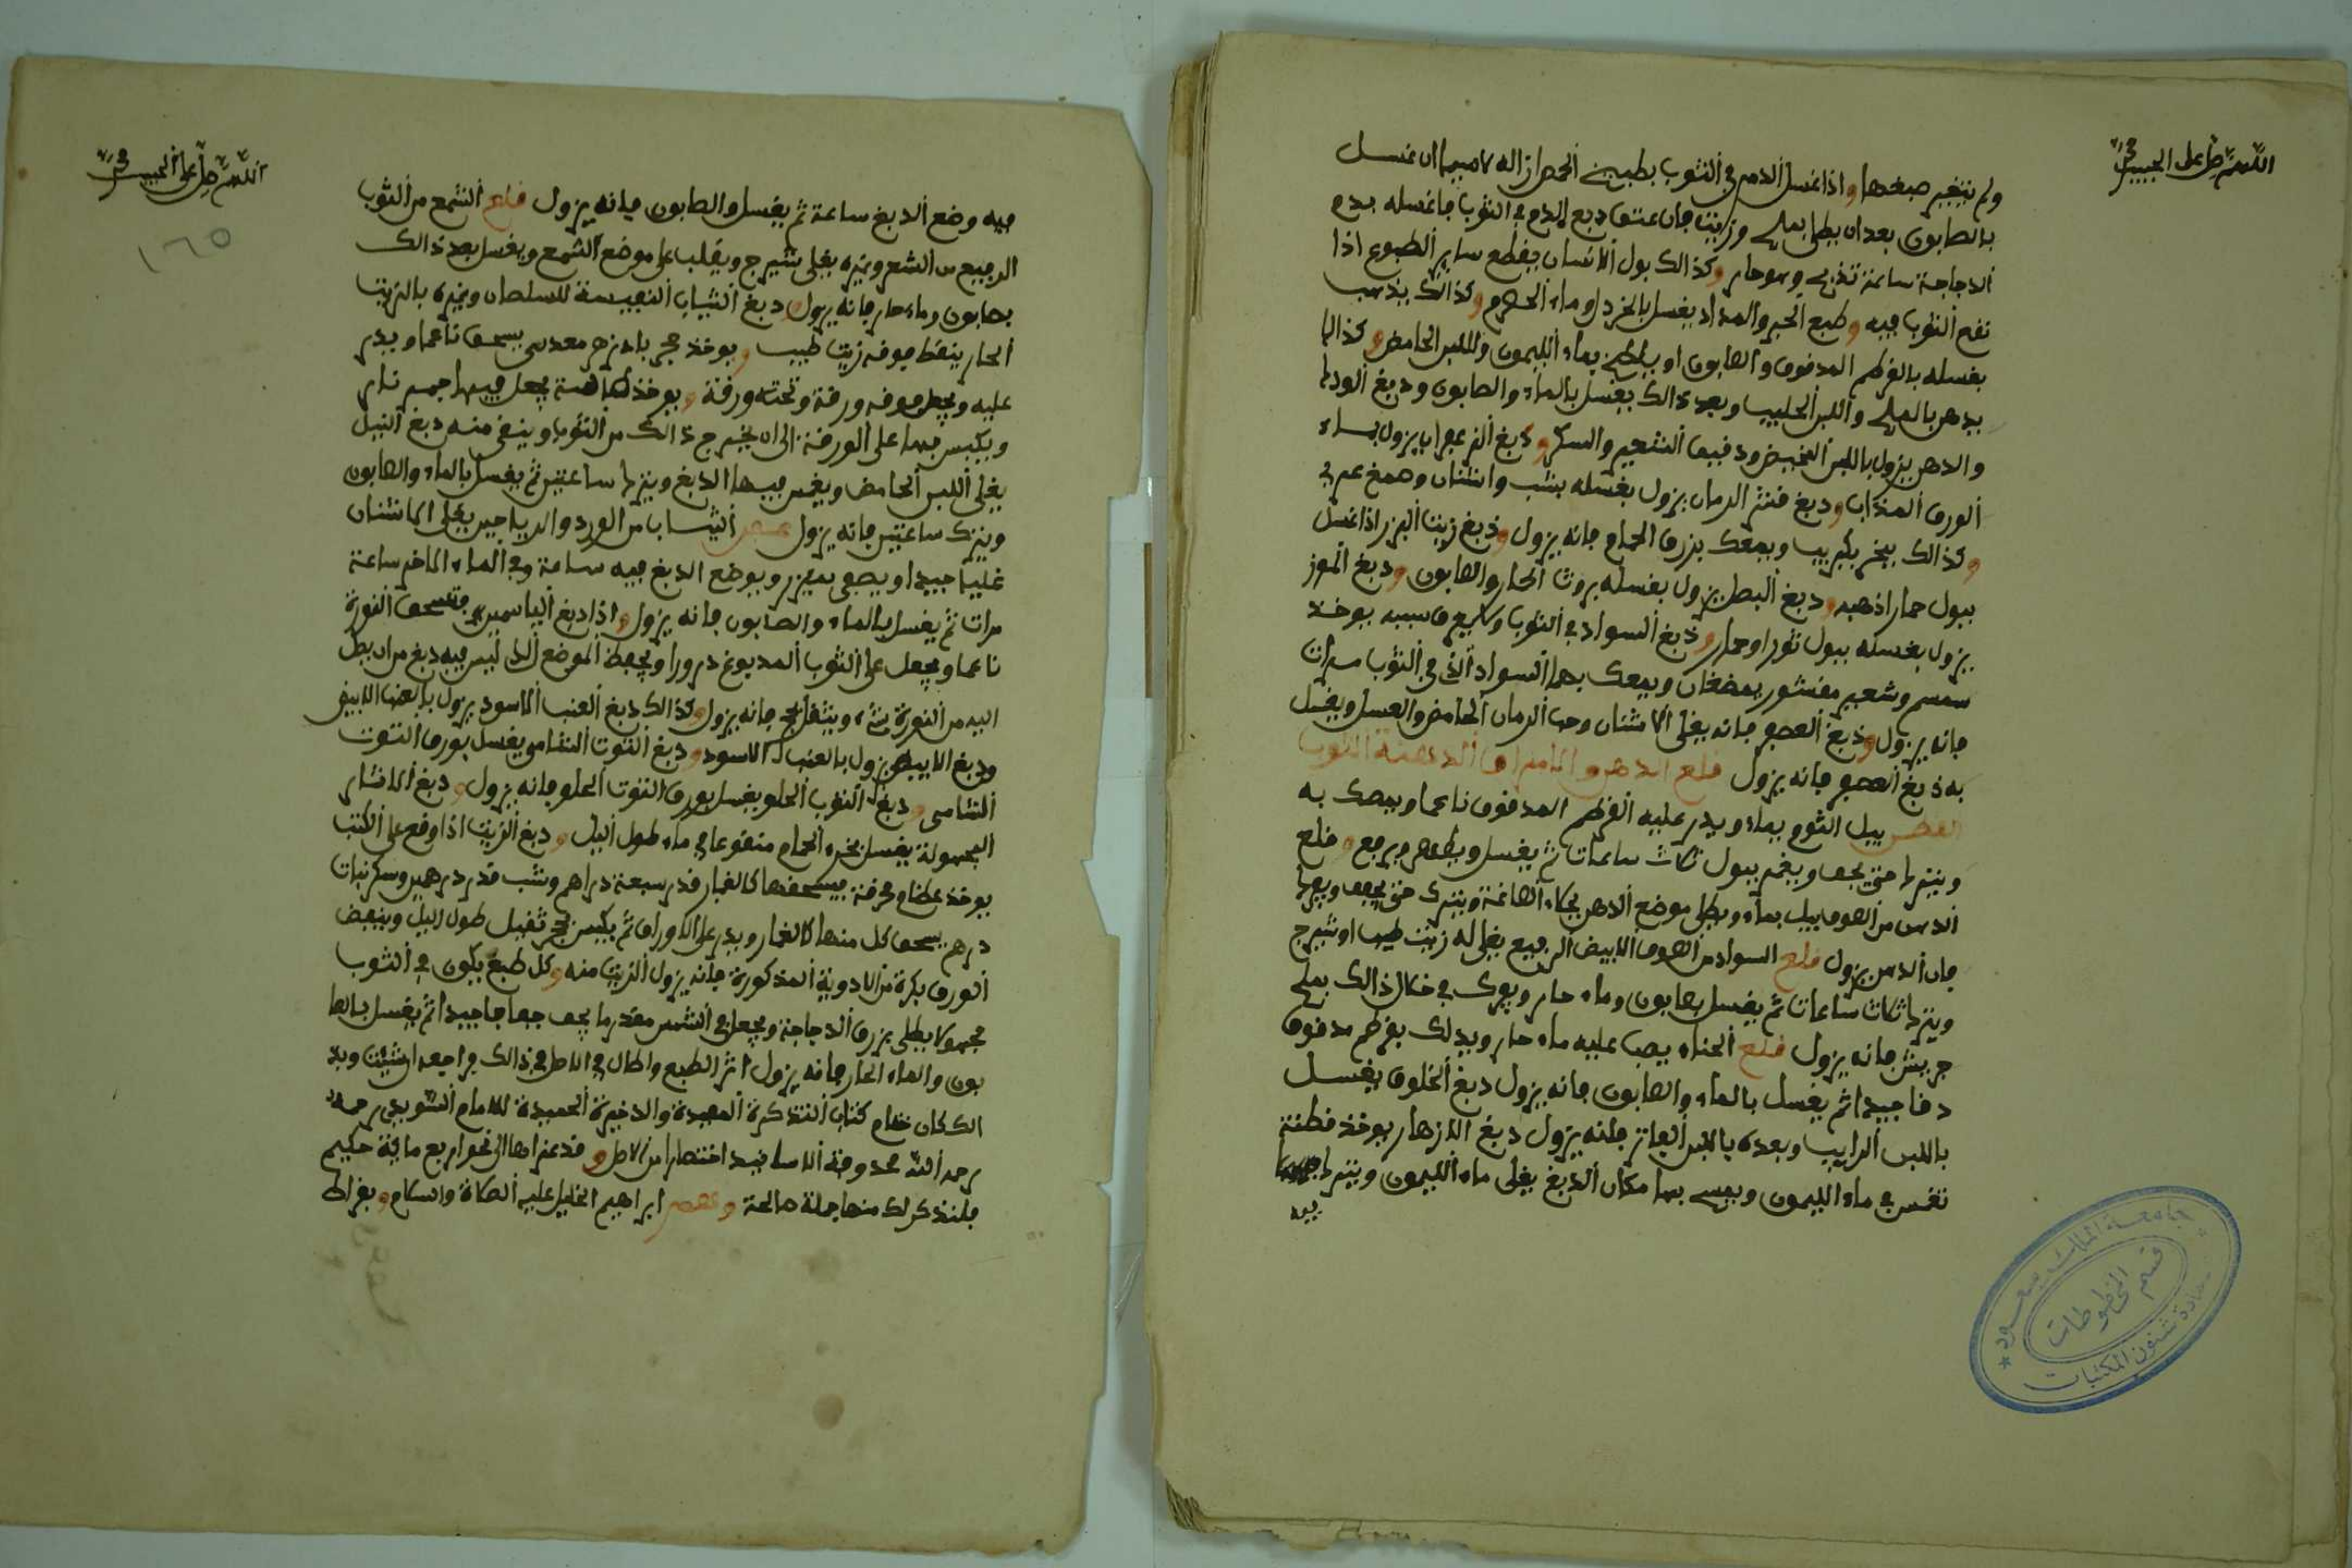 اللهم صل على الحبيب
ولم يتغير صبغها واذا غسل الدم في الثوب بطبيخ الحمص ازاله لاسيما ان غسل
بالصابون بعد ان يطلى بملح وزيت فان عتق دبغ الدم في الثوب فاغسله بدم
الدجاجة ساعة تذبح وهو حار وكذالك بول الانسان يقطع ساير الطبوع اذا
نقع الثوب فيه وطبع الحبر والمداد يغسل بالخردل وماء الحصرم وكذالك يذهب
بغسله بالقرطم المدقوق والصابون او يطبخ بماء الليمون واللبن الحامض وكذالك
يدهن بالملح واللبن الحليب وبعد ذالك يغسل بالماء والصابون ودبغ الودك
والدهن يزول باللبن المخيض ودقيق الشعير والسكر ودبغ الزعفران يزول بماء
الورق المذاب ودبغ قشر الرمان يزول بغسله بشب واشنان وصمغ عربي
وكذالك يبخر بكبريت ويمعك بزرق الحمام فانه يزول ودبغ زيت البزر اذا غسل
ببول حمار اذهبه ودبغ البطيخ يزول بغسله بروث الحمار والصابون ودبغ الموز
يزول بغسله ببول ثور او حمار ودبغ السواد في الثوب ولا يعرف سببه يوخذ
سمسم وشعير مقشور يمضغان ويمعك بهما السواد الذي في الثوب مرات
فانه يزول ودبغ العصفر فانه يغلى الاشنان وحب الرمان الحامض والعسل ويغسل
به دبغ العصفر فانه يزول قلع الدهن والامراق الدهنة الثوب
القطن يبل الثوب بماء ويدر عليه القرطم المدقوق ناعما ويمعك به
ويترك حتى يجف ويغمر ببول ثلاث ساعات ثم يغسل ويطعم ويرفع وقلع
الدهن من الصوف يبل بماء ويطلى موضع الدهن بجلاء الصاغة ويترك حتى يجف ويفرك
فان الدهن يزول قلع السواد من الصوف الابيض الرفيع يغلى له زيت طيب او شيرج
ويترك ثلاث ساعات ثم يغسل بصابون وماء حار ويفرك في خلال ذالك بملح
جريش فانه يزول قلع الحناء يصب عليه ماء حار ويدلك بقرطم مدقوق
دقا جيدا ثم يغسل بالماء والصابون فانه يزول دبغ الخلوق يغسل
باللبن الرايب وبعده باللبن الفاتر فانه يزول دبغ الازهار يوخذ قطنة
تغمس في ماء الليمون ويمسح بها مكان الدبغ يغلى ماء الليمون ويترك
فيه
جامعة الملك سعود
قسم المخطوطات
عمادة شئون المكتبات
اللهم صل على الحبيب
١٦٥
فيه وضع الدبغ ساعة ثم يغسل والصابون فانه يزول قلع الشمع من الثوب
الرفيع من الشعر وغيره يغلى شيرج ويقلب على موضع الشمع ويغسل بعد ذالك
بصابون وماء حار فانه يزول دبغ الثياب النفيسة للسلطان وغيره بالزيت
الحار ينقط فوقه زيت طيب ويوخذ حجر بادزهر معدني يسحق ناعما ويدر
عليه ويجعل فوقه ورقة وتحته ورقة ويوخذ طاسة يجعل فيها جمر نار
ويكبس بها على الورقة الى ان يخرج ذالك من الثوب وينقى منه دبغ النيل
يغلى اللبن الحامض ويغمس فيها الدبغ ويترك ساعتين ثم يغسل بالماء والصابون
ويترك ساعتين فانه يزول الثياب من الورد والرياحين يغلى الاشنان
غليا جيدا ويصفى بميزر ويوضع الدبغ فيه ساعة وفي الماء الفاخر ساعة
مرات ثم يغسل بالماء والصابون فانه يزول واذا دبغ الياسمين فتسحق النورة
ناعما ويجعل على الثوب المدبوغ درورا ويحفظ الموضع الذي ليس فيه دبغ من ان يصل
اليه من النورة شيء ويثقل بحجر فانه يزول وكذالك دبغ العنب الاسود يزول بالعنب الابيض
ودبغ الابيض يزول بالعنب الاسود ودبغ التوت الشامي يغسل بورق التوت
الشامي ودبغ التوت الحلو يغسل بورق التوت الحلو فانه يزول ودبغ الاثار
المجهولة يغسل بخرء الحمام منقوعا في ماء طول الليل ودبغ الزيت اذا وقع على الكتب
يوخذ عظام محرقة يسحقها كالغبار قدر سبعة دراهم وشب قدر درهمين وسكر نبات
درهم يسحق كل منها كالغبار ويدر على الاوراق ثم يكبس بحجر ثقيل طول الليل وينفض
الورق بكرة من الادوية المذكورة فانه يزول الزيت منه وكل طبع يكون في الثوب
مجهولا يطلى بزرق الدجاجة ويجعل في الشمس مقدر ما يجف جفافا جيدا ثم يغسل بالصا
بون والماء الحار فانه يزول اثر الطبع واطال في الاصل في ذالك فراجعه ان شيت وبذ
الك كان ختام كتاب التذكرة المفيدة والذخيرة الحميدة للامام السويدي رحمه
رحمه الله محذوفة الاسانيد اختصارا من الاصل وقد عزاها الى نحو اربع مائة حكيم
فلنذكر لك منها جملة صالحة فمنهم ابراهيم الخليل عليه الصلاة والسلام وبقراط